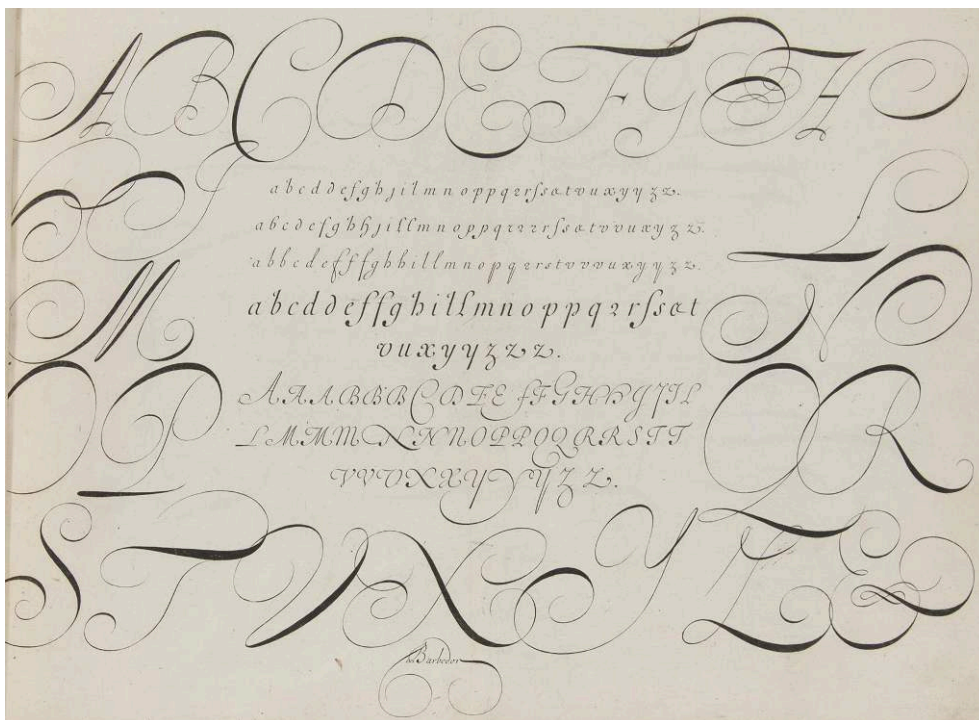 A B C D E F G H
I L
a b c d d e f g h j i l m n o p p q 2 r ſ s a t v u x y y z z.
a b c d e f g h h j i l l m n o p p q r 2 2 r ſ s a t v v u x y z z.
a b b c d e f f f g h h i l l m n o p q 2 r s t v v v u x y y z z.
a b c d d e f f g h i l l m n o p p q 2 r ſ s a t
v u x y y z z z.
M N
A A A B B B C D E E F F G H H J I L
L M M M N N N O P P O Q R R S T T
V V V X X Y Y Y Z Z.
O P Q R
S T V X Y Z &
Barbedor